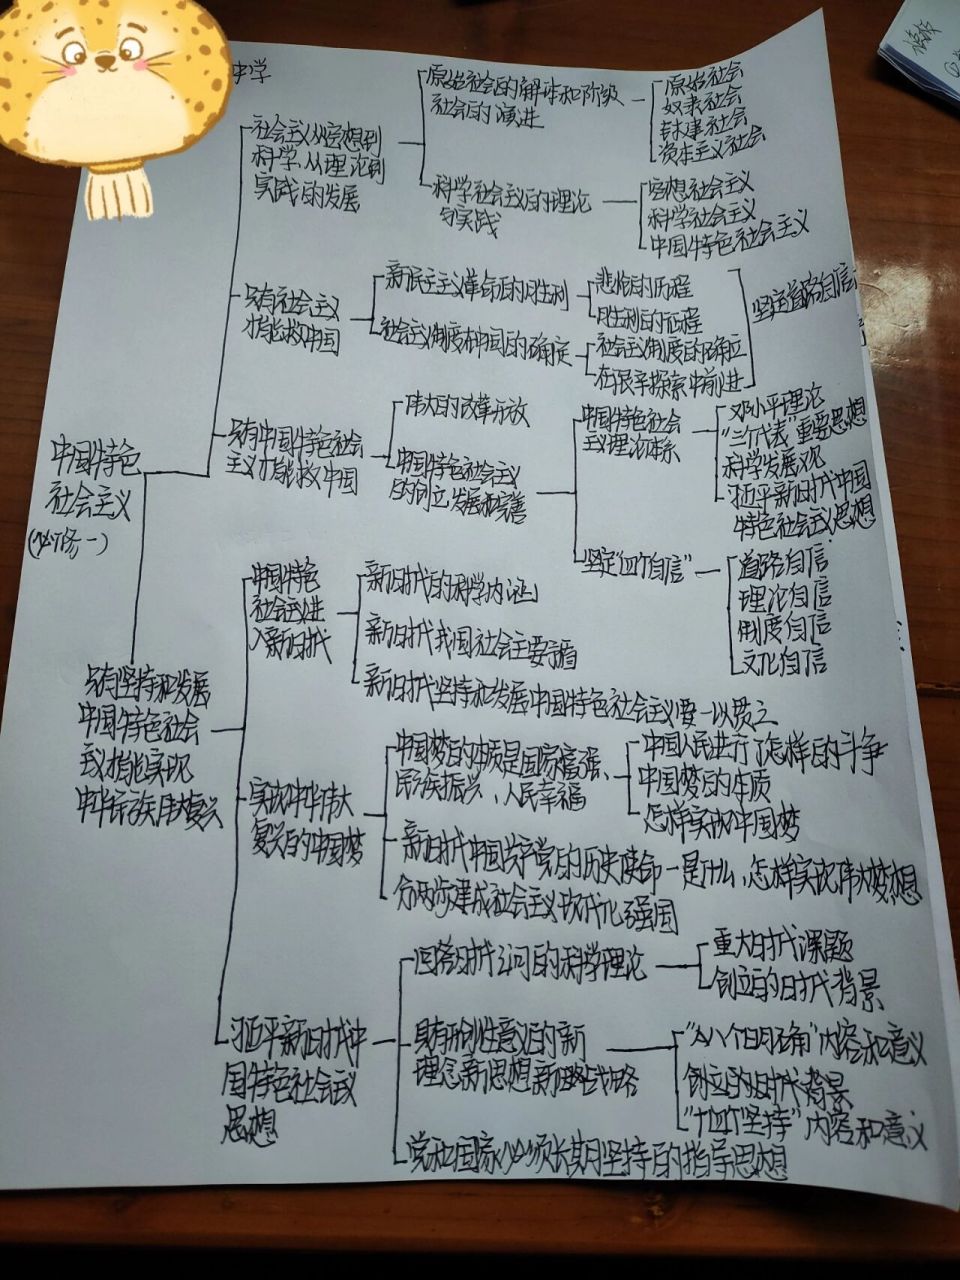 中学
社会主义从空想到
科学、从理论到
实践的发展
原始社会的解体和阶级
社会的演进
原始社会
奴隶社会
封建社会
资本主义社会
科学社会主义的理论
与实践
空想社会主义
科学社会主义
中国特色社会主义
只有社会主义
才能救中国
新民主主义革命的胜利
悲怆的历程
胜利的征程
社会主义制度在中国的确定
社会主义制度的确立
在艰辛探索中前进
坚定道路自信
只有中国特色社会
主义才能救中国
伟大的改革开放
中国特色社会主义
的创立发展和完善
中国特色社会
主义理论体系
邓小平理论
"三个代表"重要思想
科学发展观
习近平新时代中国
特色社会主义思想
坚定"四个自信"
道路自信
理论自信
制度自信
文化自信
中国特色
社会主义
(必修一)
只有坚持和发展
中国特色社会
主义才能实现
中华民族伟大复兴
中国特色
社会主义进
入新时代
新时代的科学内证
新时代我国社会主要矛盾
新时代坚持和发展中国特色社会主义要一以贯之
实现中华伟大
复兴的中国梦
中国梦的本质是国家富强、
民族振兴、人民幸福
中国人民进行了怎样的斗争
中国梦的本质
怎样实现中国梦
新时代中国共产党的历史使命一是什么,怎样实现伟大梦想
分两步建成社会主义现代化强国
习近平新时代中
国特色社会主义
思想
回答时代之问的科学理论
重大时代课题
创立的时代背景
具有开创性意义的新
理念新思想新战略
"八个明确"内容和意义
创立的时代背景
"十四个坚持"内容和意义
党和国家必须长期坚持的指导思想